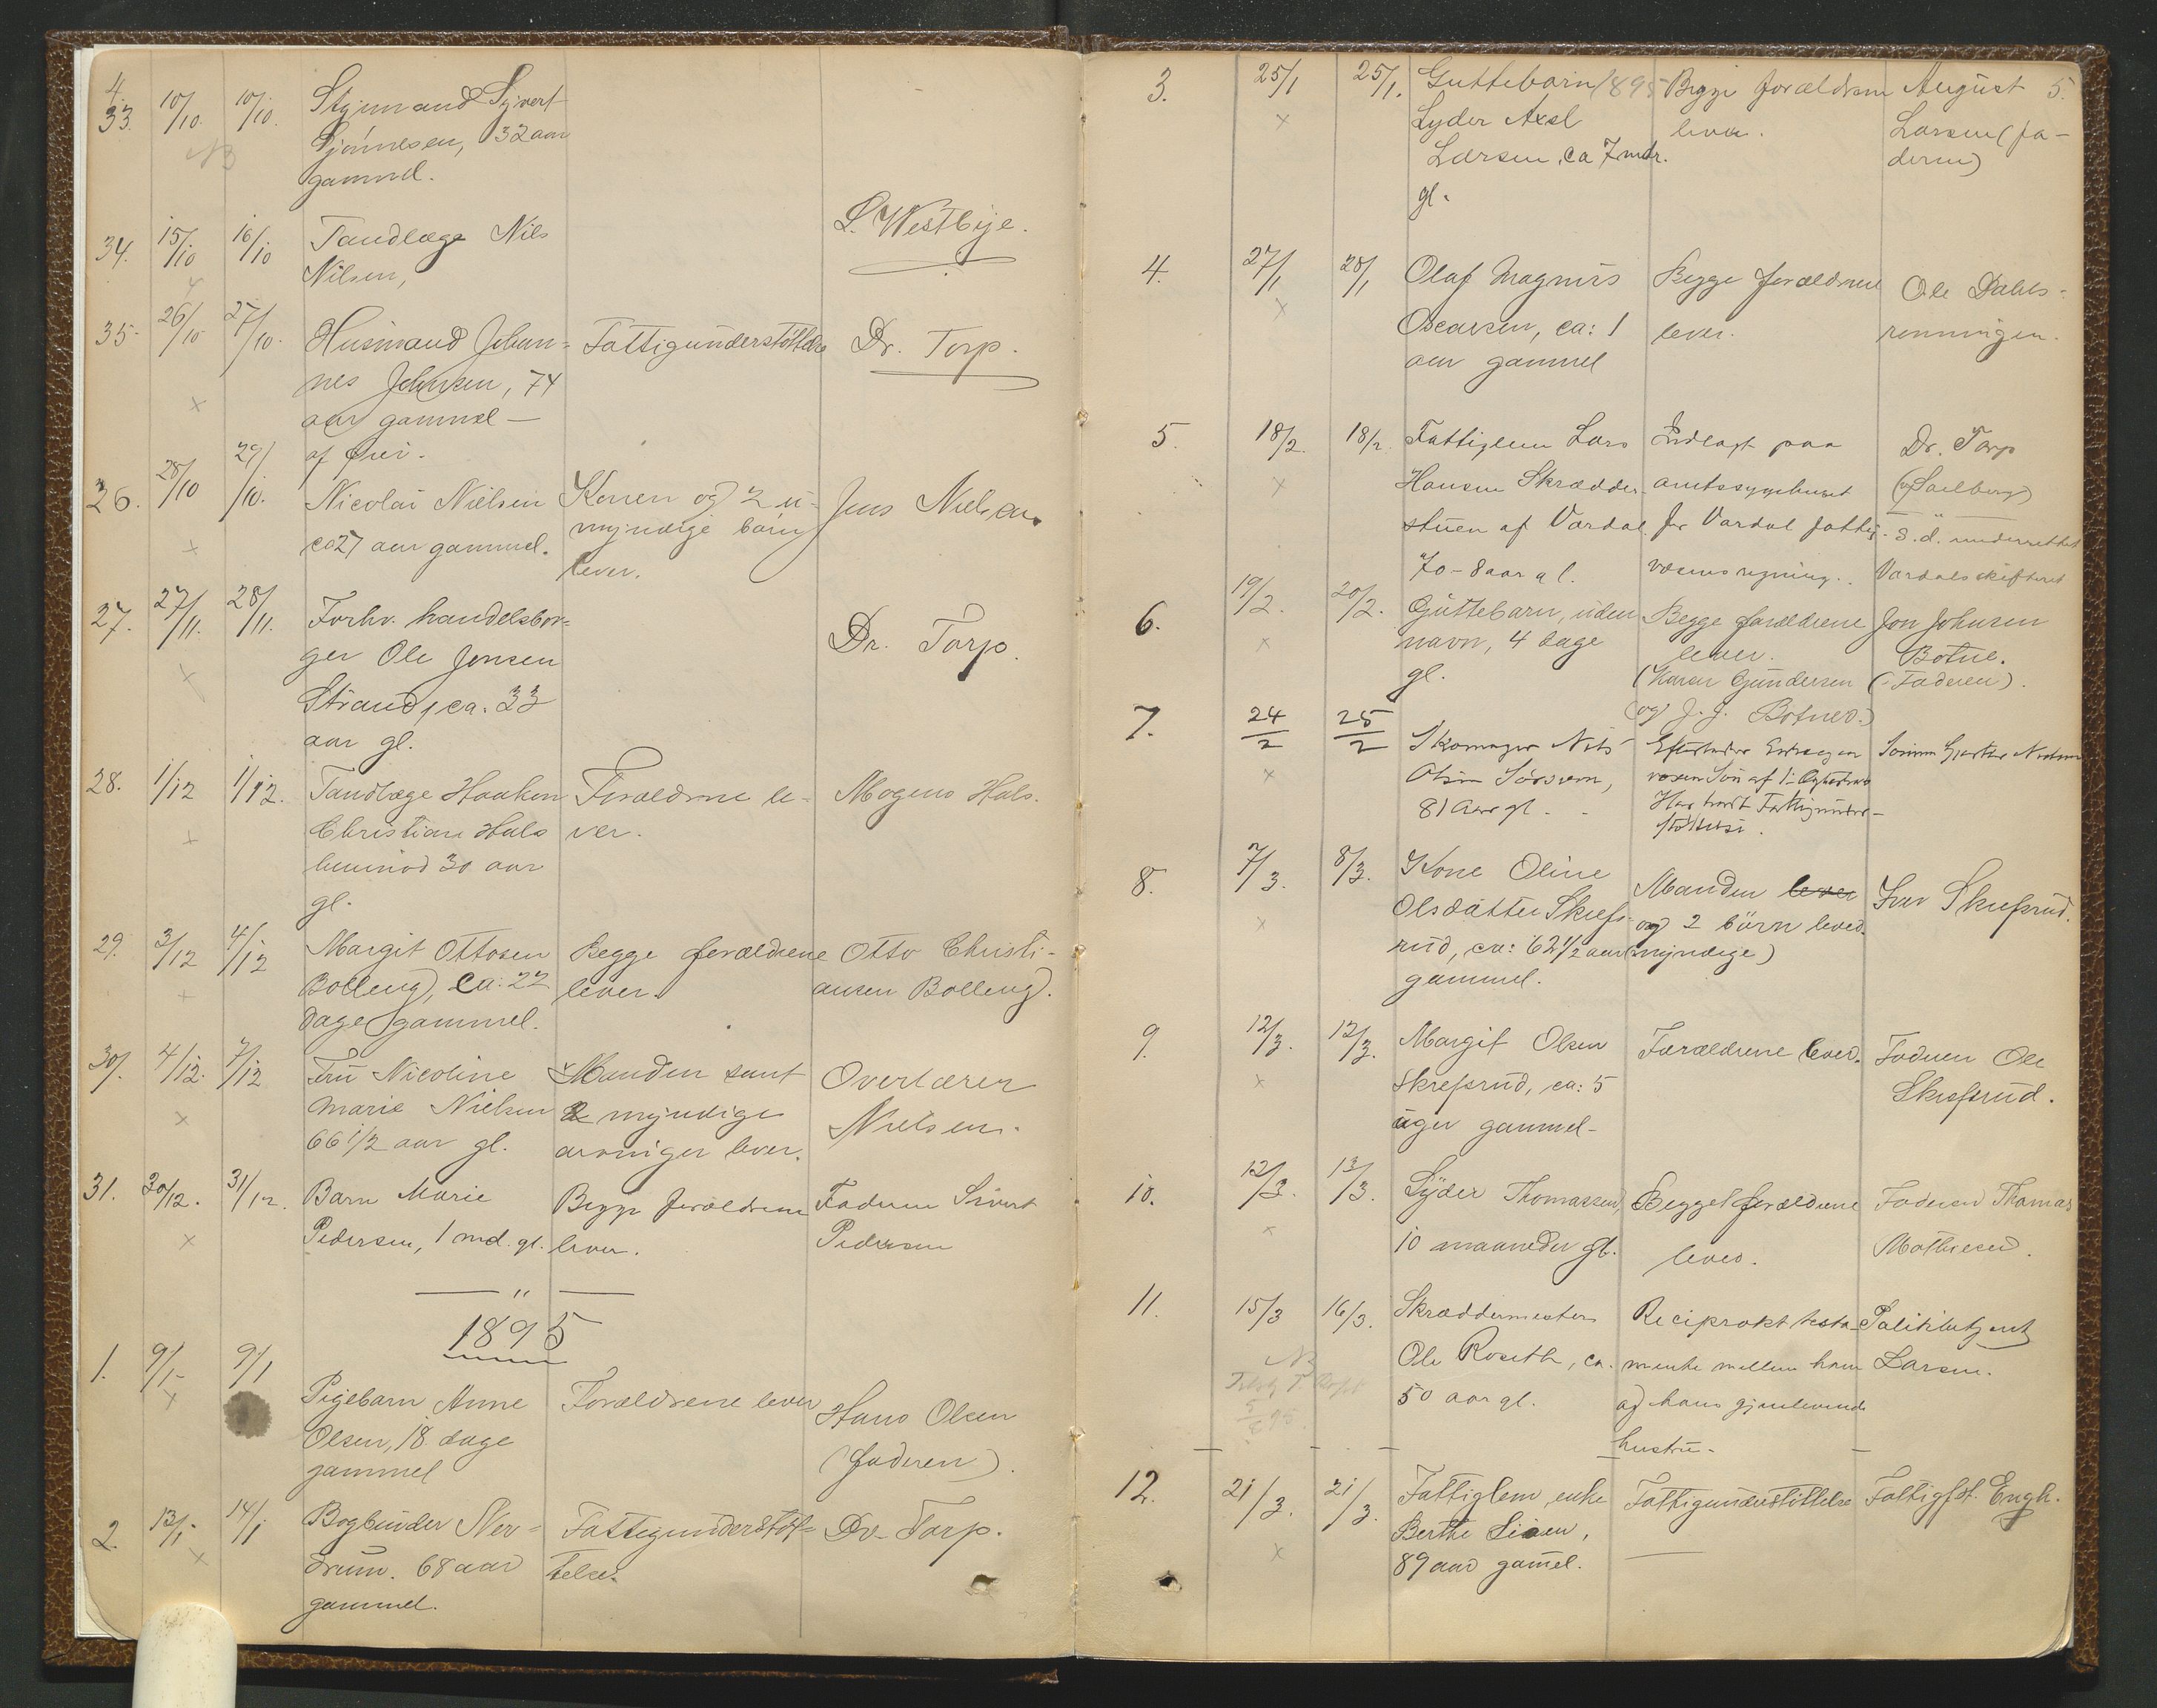 4.
33. 10/10. 10/10. Styrmand Syvert
Sjønnesen, 32 aar
gammel.
NB
L. Westbye.
34. 15/10 16/10 Tandlæge Nils
Nilsen,
35. 26/10 27/10. Husmand Johan= Fattigunderstøttelse Dr. Torp.
nes Johnsen, 74
aar gammel —
af
26. 28/10 29/10. Nicolai Nielsen Konen og 2 u- Jens Nielsen.
ca 27 aar gammel. myndige børn
lever.
27. 27/11. 28/11. Forhv. handelsbor= Dr. Torp.
ger Ole Jensen
Strand, ca. 33
aar gl.
28. 1/12 1/12. Tandlæge Haaken Forældrene le- Mogens Hals.
Christian Hals ver.
30 aar
gl.
29. 3/12 4/12 Margit Ottosen Begge forældrene Otto Christi-
Bolleng, ca: 22 lever. ansen Bolleng.
dage gammel.
30. 4/12. 7/12 Fru Nicoline Manden samt Overlærer
Marie Nielsen 2 myndige Nielsen.
66 1/2 aar gl. arvinger lever.
31. 30/12. 31/12. Barn Marie Begge forældrene Faderen Sivert
Pedersen, 1 md. gl. lever. Pedersen
— " —
1895
1. 9/1- 9/1 Pigebarn Anne Forældrene lever Hans Olsen
Olsen, 18 dage (faderen).
gammel
2. 13/1 14/1 Bogbinder Ner= Fattigunderstøt= Dr. Torp.
drum. 68 aar telse.
gammel.
3. 25/1 25/1. Guttebarn 1895 Begge forældrene August 5.
Lyder Axel lever. Larsen (fa-
Larsen, ca 7 mdr. deren)
gl.
4. 27/1 28/1 Olaf Magnus Begge forældrene Ole Dahls-
Oscarsen, ca: 1 lever. rønningen.
aar gammel
5. 18/2. 18/2. Fattiglem Lars Indlagt paa Dr. Torp
Hansen Skrædder- amtssygehuset (Sælberg)
stuen af Vardal. for Vardal fattig- S. d. underrettet
70-8 aar gl. væsens regning. Vardals skifteret
6. 19/2. 20/2. Guttebarn, uden Begge forældrene Jon Johnsen
navn, 4 dage lever. Botne.
gl. (Karen Gundersen (Faderen).
og J. J. Botner.)
7. 24/2 25/2 Skomager Nils Efterlader
Olsen voxen Søn af 1ste
81 Aar gl. Har havt Fattigunder-
støttelse.
8. 7/3. 8/3. Kone Oline Manden lever Iver Skrefsrud.
Olsdatter Skrefs- og 2 børn lever.
rud, ca: 62 1/2 aar (myndige)
gammel.
9. 12/3. 12/3. Margit Olsen Forældrene lever. Faderen Ole
Skrefsrud, ca: 5 Skrefsrud.
uger gammel-
10. 12/3. 13/3. Lyder Thomassen, Begge forældrene Faderen Thomas
10 maaneder gl. lever. Mathisen.
11. 15/3 16/3. Skræddermester Reciprokt testa- Politibetjent
Ole Roseth, ca. mente mellem ham Larsen.
50 aar gl. og hans gjenlevende
hustru.
NB
12. 21/3. 21/3. Fattiglem enke Fattigunderstøttelse Fattigfst. Engh.
Berthe
89 aar gamel.